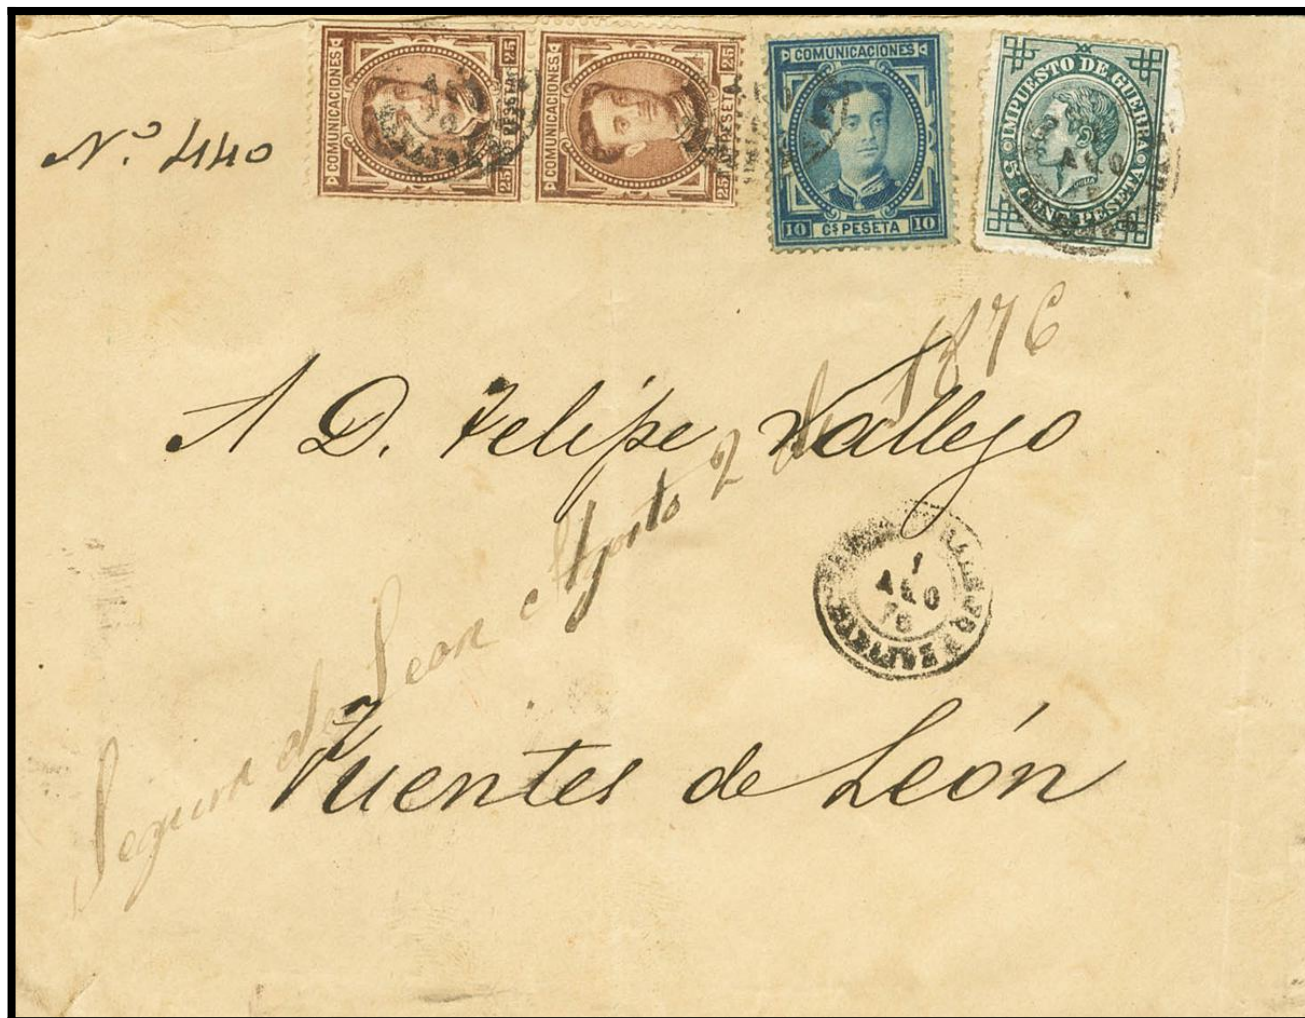 Nº 440
COMUNICACIONES 25 25 Cs PESETA
COMUNICACIONES 25 25 Cs PESETA
COMUNICACIONES
10 Cs PESETA 10
IMPUESTO DE GUERRA
5 CENT. PESETA
A D. Felipe Vallejo
Segura de Leon Agosto 2 de 1876
1
AGO
76
Fuentes de León